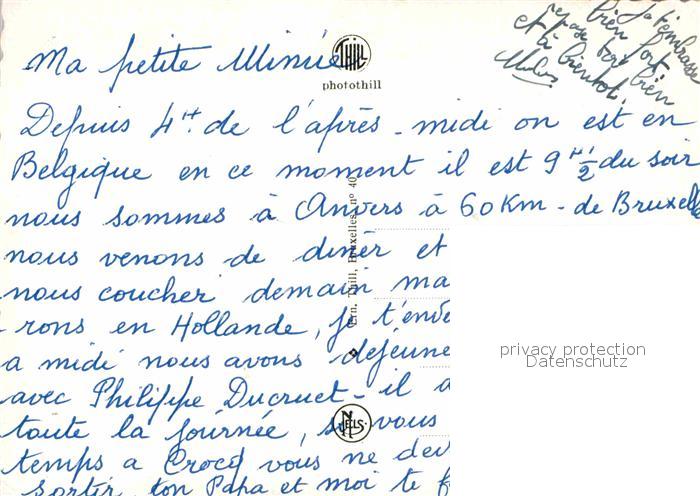 Je t'embrasse
bien fort
repose toi bien
et à bientôt.
Ma petite Minie
THILL
photothill
Depuis 4 H. de l'après-midi on est en
Belgique en ce moment il est 9 H 1/2 du soir
nous sommes à Anvers à 60 Km - de Bruxelle
nous venons de dinér et
nous coucher demain ma
rons en Hollande, je t'enve
a midi nous avons déjeune
avec Philippe Ducruet - il a
toute la journée, si vous
temps a Crocq vous ne dev
sortir, ton Papa et moi te f
Ern. Thill, Bruxelles, nº 40
NELS
privacy protection
Datenschutz